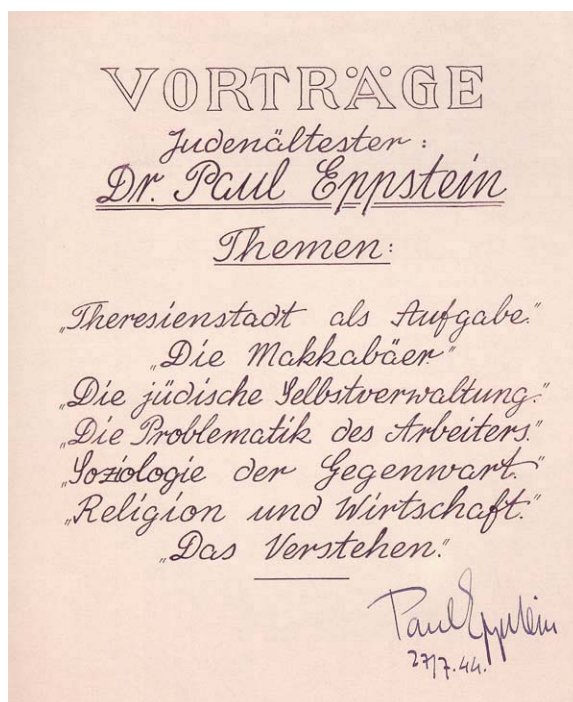 VORTRÄGE
Judenältester:
Dr. Paul Eppstein
Themen:
„Theresienstadt als Aufgabe.“
„Die Makkabäer“
„Die jüdische Selbstverwaltung.“
„Die Problematik des Arbeiters.“
„Soziologie der Gegenwart.“
„Religion und Wirtschaft.“
„Das Verstehen.“
Paul Eppstein
27/7.44.